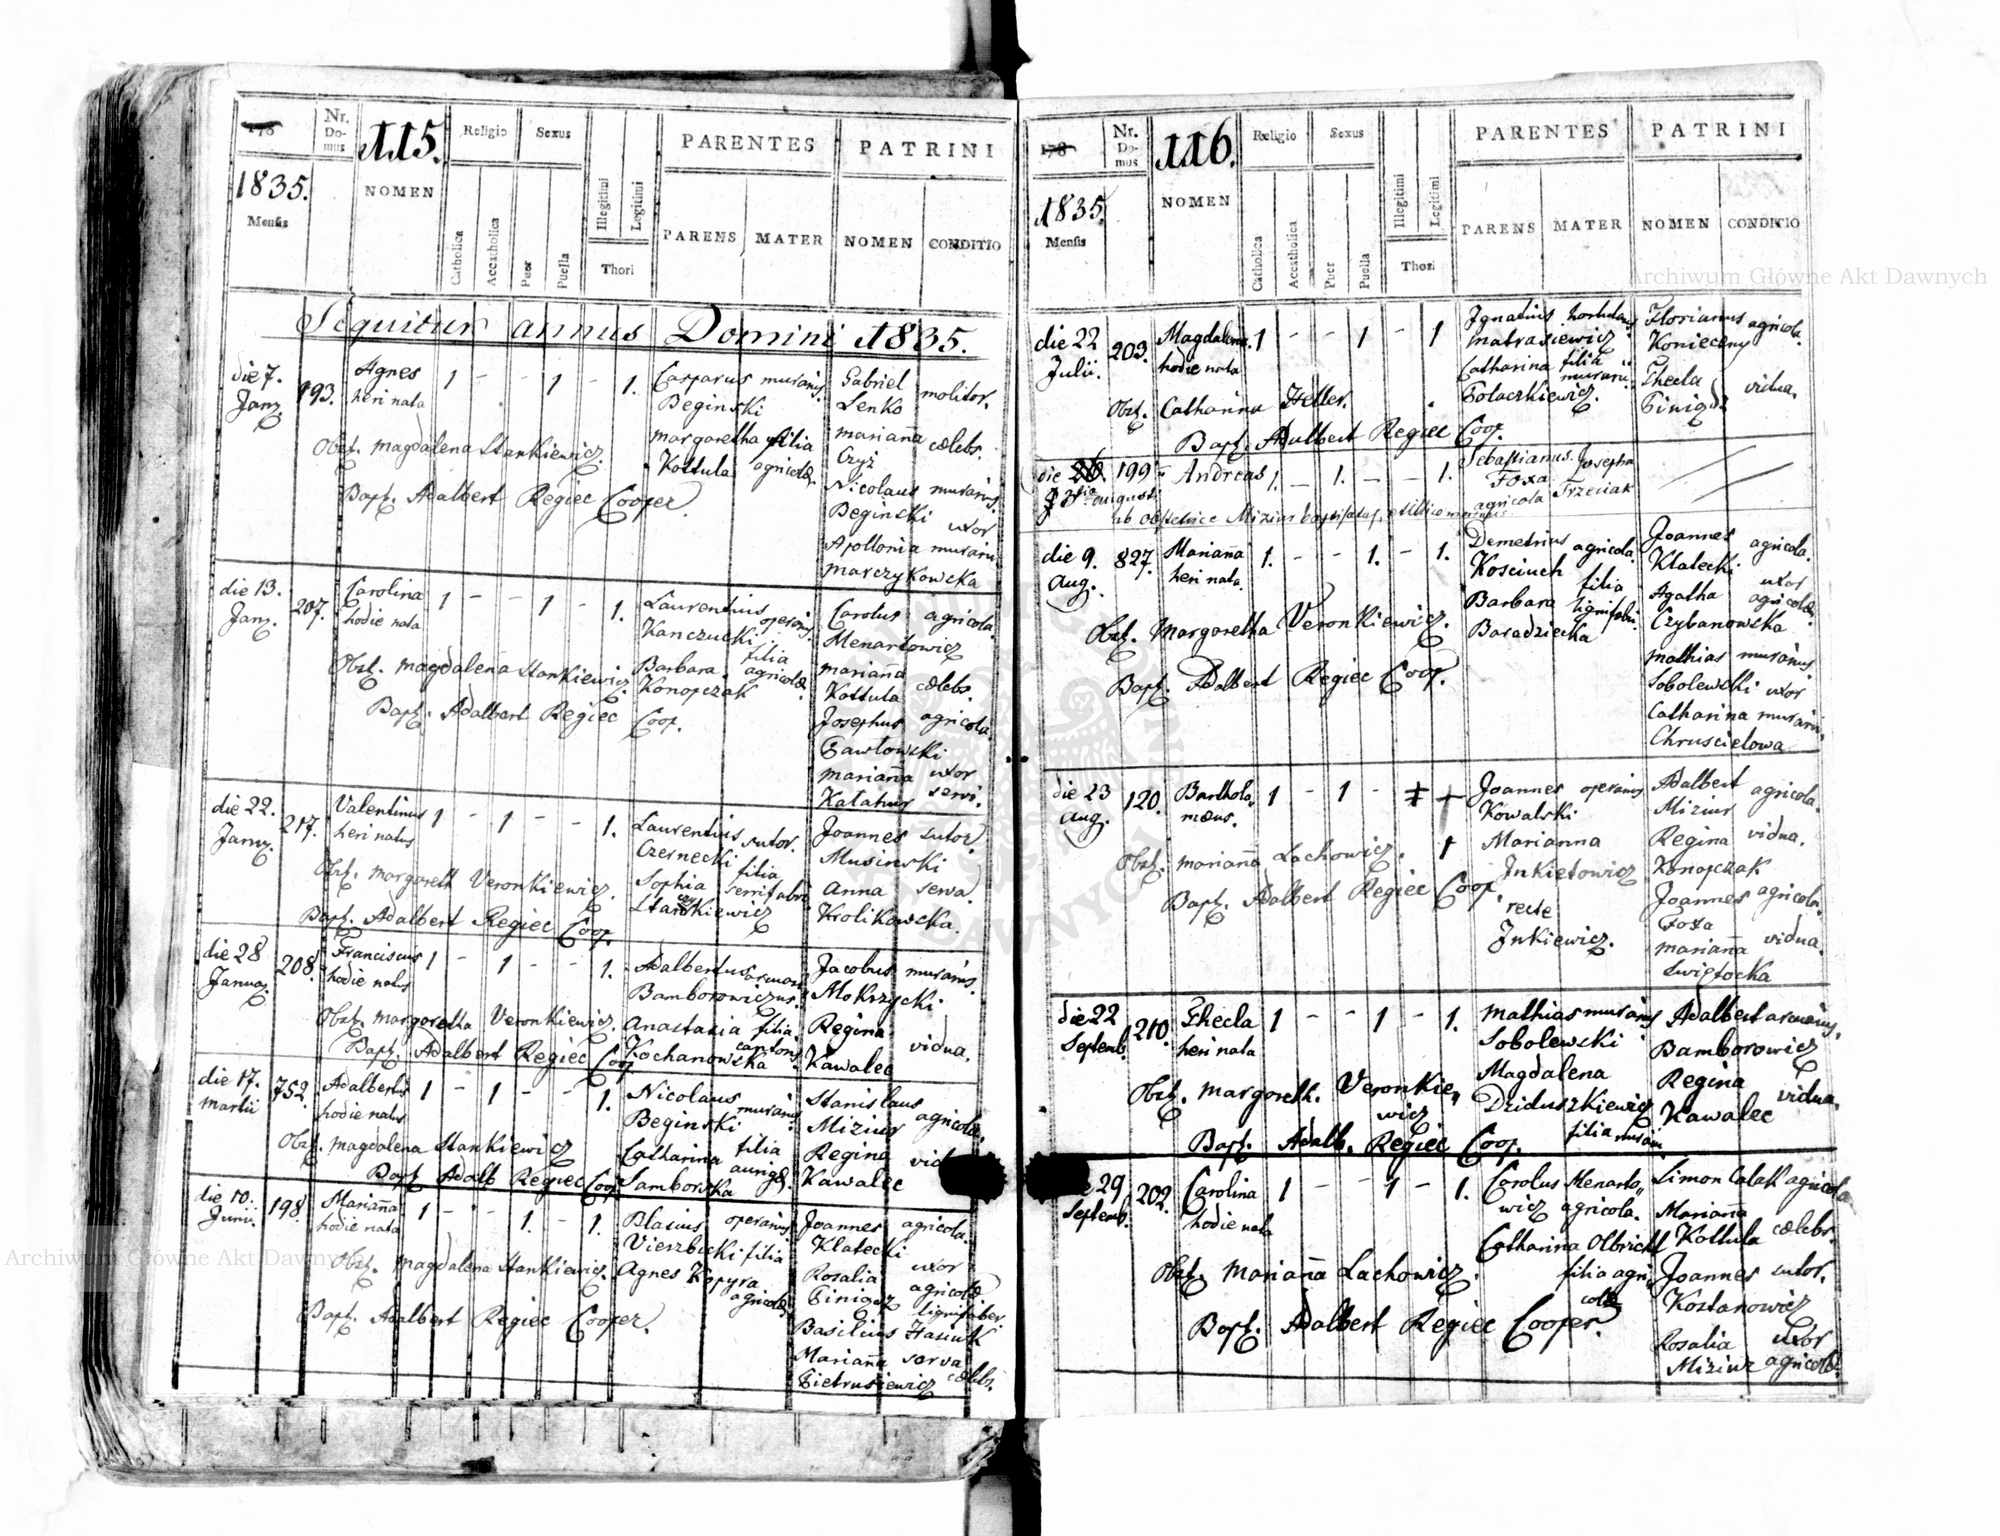 178
Nr. Domus
115.
Religio
Sexus
Illegitimi
Legitimi
PARENTES
PATRINI
1835.
Mensis
NOMEN
Catholica
Accatholica
Puer
Puella
Thori
PARENS
MATER
NOMEN
CONDITIO
Sequitur annus Domini 1835.
die 7. Jany. 193. Agnes heri nata 1 - - 1 - 1.
Casparus murarius
Beginski
Margaretha filia
Kottula agricolæ
Gabriel
Lenko molitor.
Marianna cælebs.
Czyż
Nicolaus murarius.
Beginski uxor
Apollonia murarii
Marczykowska
Obst. Magdalena Stankiewicz.
Bapt. Adalbert Regiec Cooper.
die 13. Jany. 207. Carolina hodie nata 1 - - 1 - 1.
Laurentius operarius
Kanczucki filia
Barbara agricolæ
Konopczak
Carolus agricola.
Menartowicz
Marianna
Kottula cælebs.
Josephus agricola.
Pawłowski
Marianna uxor
Katahur servi.
Obst. Magdalena Stankiewicz.
Bapt. Adalbert Regiec Coop.
die 22. Jany. 217. Valentinus heri natus 1 - 1 - - 1.
Laurentius sutor.
Czernecki filia
Sophia
Stankiewicz
Joannes sutor
Musinski
Anna serva
Krolikowska.
Obst. Margareth Veronkiewicz.
Bapt. Adalbert Regiec Coop.
die 28 Januar. 208. Franciscus hodie natus 1 - 1 - - 1.
Adalbertus
Bamborowiczus.
Anastasia filia
Kochanowska
Jacobus murarius.
Mokrzycki
Regina
Kawalec vidua.
Obst. Margaretha Veronkiewicz.
Bapt. Adalbert Regiec Coop
die 17. Martii 752. Adalbertus hodie natus 1 - 1 - - 1.
Nicolaus murarius
Beginski
Catharina filia
Samborska aurigæ.
Stanislaus agricola.
Miziur
Regina
Kawalec
Obst. Magdalena Stankiewicz
Bapt. Adalb Regiec Coop
die 10. Junii. 198. Marianna hodie nata 1 - - 1. - 1.
Blasius operarius
Vierzbicki filia
Agnes Kopyra
agricolæ
Joannes agricola.
Klatecki uxor
Rosalia agricolæ
Pinigaz lignifaber.
Basilius Hauuk
Marianna serva
Pietrusiewicz cælebs.
Obst. Magdalena Stankiewicz.
Bapt. Adalbert Regiec Cooper.
178
Nr. Domus
116.
Religio
Sexus
Illegitimi
Legitimi
PARENTES
PATRINI
1835.
Mensis
NOMEN
Catholica
Accatholica
Puer
Puella
Thori
PARENS
MATER
NOMEN
CONDITIO
die 22 Julii. 203. Magdalena. hodie nata 1 - - 1 - 1
Ignatius hortulanus
Matrasiewicz
Catharina filia
Polaczkiewicz. murarii
Florianus agricola.
Konieczny
Thecla vidua.
Obst. Catharina Heller.
Bapt. Adalbert Regiec Coop.
die 199 Andreas 1. - 1. - - 1.
Augusti
Sebastianus. Josepha
Foxa
agricola Trzeciak
ab obstetrice Miziur baptisatus, et illico mortuus.
die 9. Aug. 827. Marianna heri nata 1. - - 1. - 1.
Demetrius agricola.
Kosciuch filia
Barbara lignifabri.
Baradziecka
Joannes agricola.
Klatecki uxor
Agatha agricolæ
Czybanowska
Mathias murarius.
Sobolewski uxor
Catharina murarii.
Chruscielowa
Obst. Margaretha Veronkiewicz.
Bapt. Adalbert Regiec Coop.
die 23 Aug. 120. Bartholomæus. 1 - 1 -
Joannes operarius
Kowalski
Marianna
Inkietowicz
recte
Inkiewicz.
Adalbert agricola.
Miziur
Regina vidua.
Konopczak
Joannes agricola.
Foxa
Marianna vidua.
Swiętocka
Obst. Marianna Lachowicz.
Bapt. Adalbert Regiec Coop
die 22 Septemb. 210. Thecla heri nata 1 - - 1 - 1.
Mathias murarius
Sobolewski
Magdalena
Dziduszkiewicz
filia murarii
Adalbert
Bamborowicz
Regina vidua.
Kawalec
Obst. Margareth. Veronkiewicz
Bapt. Adalb. Regiec Coop.
29 Septemb. 202. Carolina hodie nata 1 - - 1 - 1.
Carolus Menartowicz agricola.
Catharina Olbricht
filia agricolæ
Simon Calak agricola
Marianna
Kottula cælebs.
Joannes sutor.
Kostanowicz
Rosalia uxor
Miziur agricolæ
Obst. Marianna Lachowicz.
Bapt. Adalbert Regiec Cooper.
Archiwum Główne Akt Dawnych
Archiwum Główne Akt Dawnych